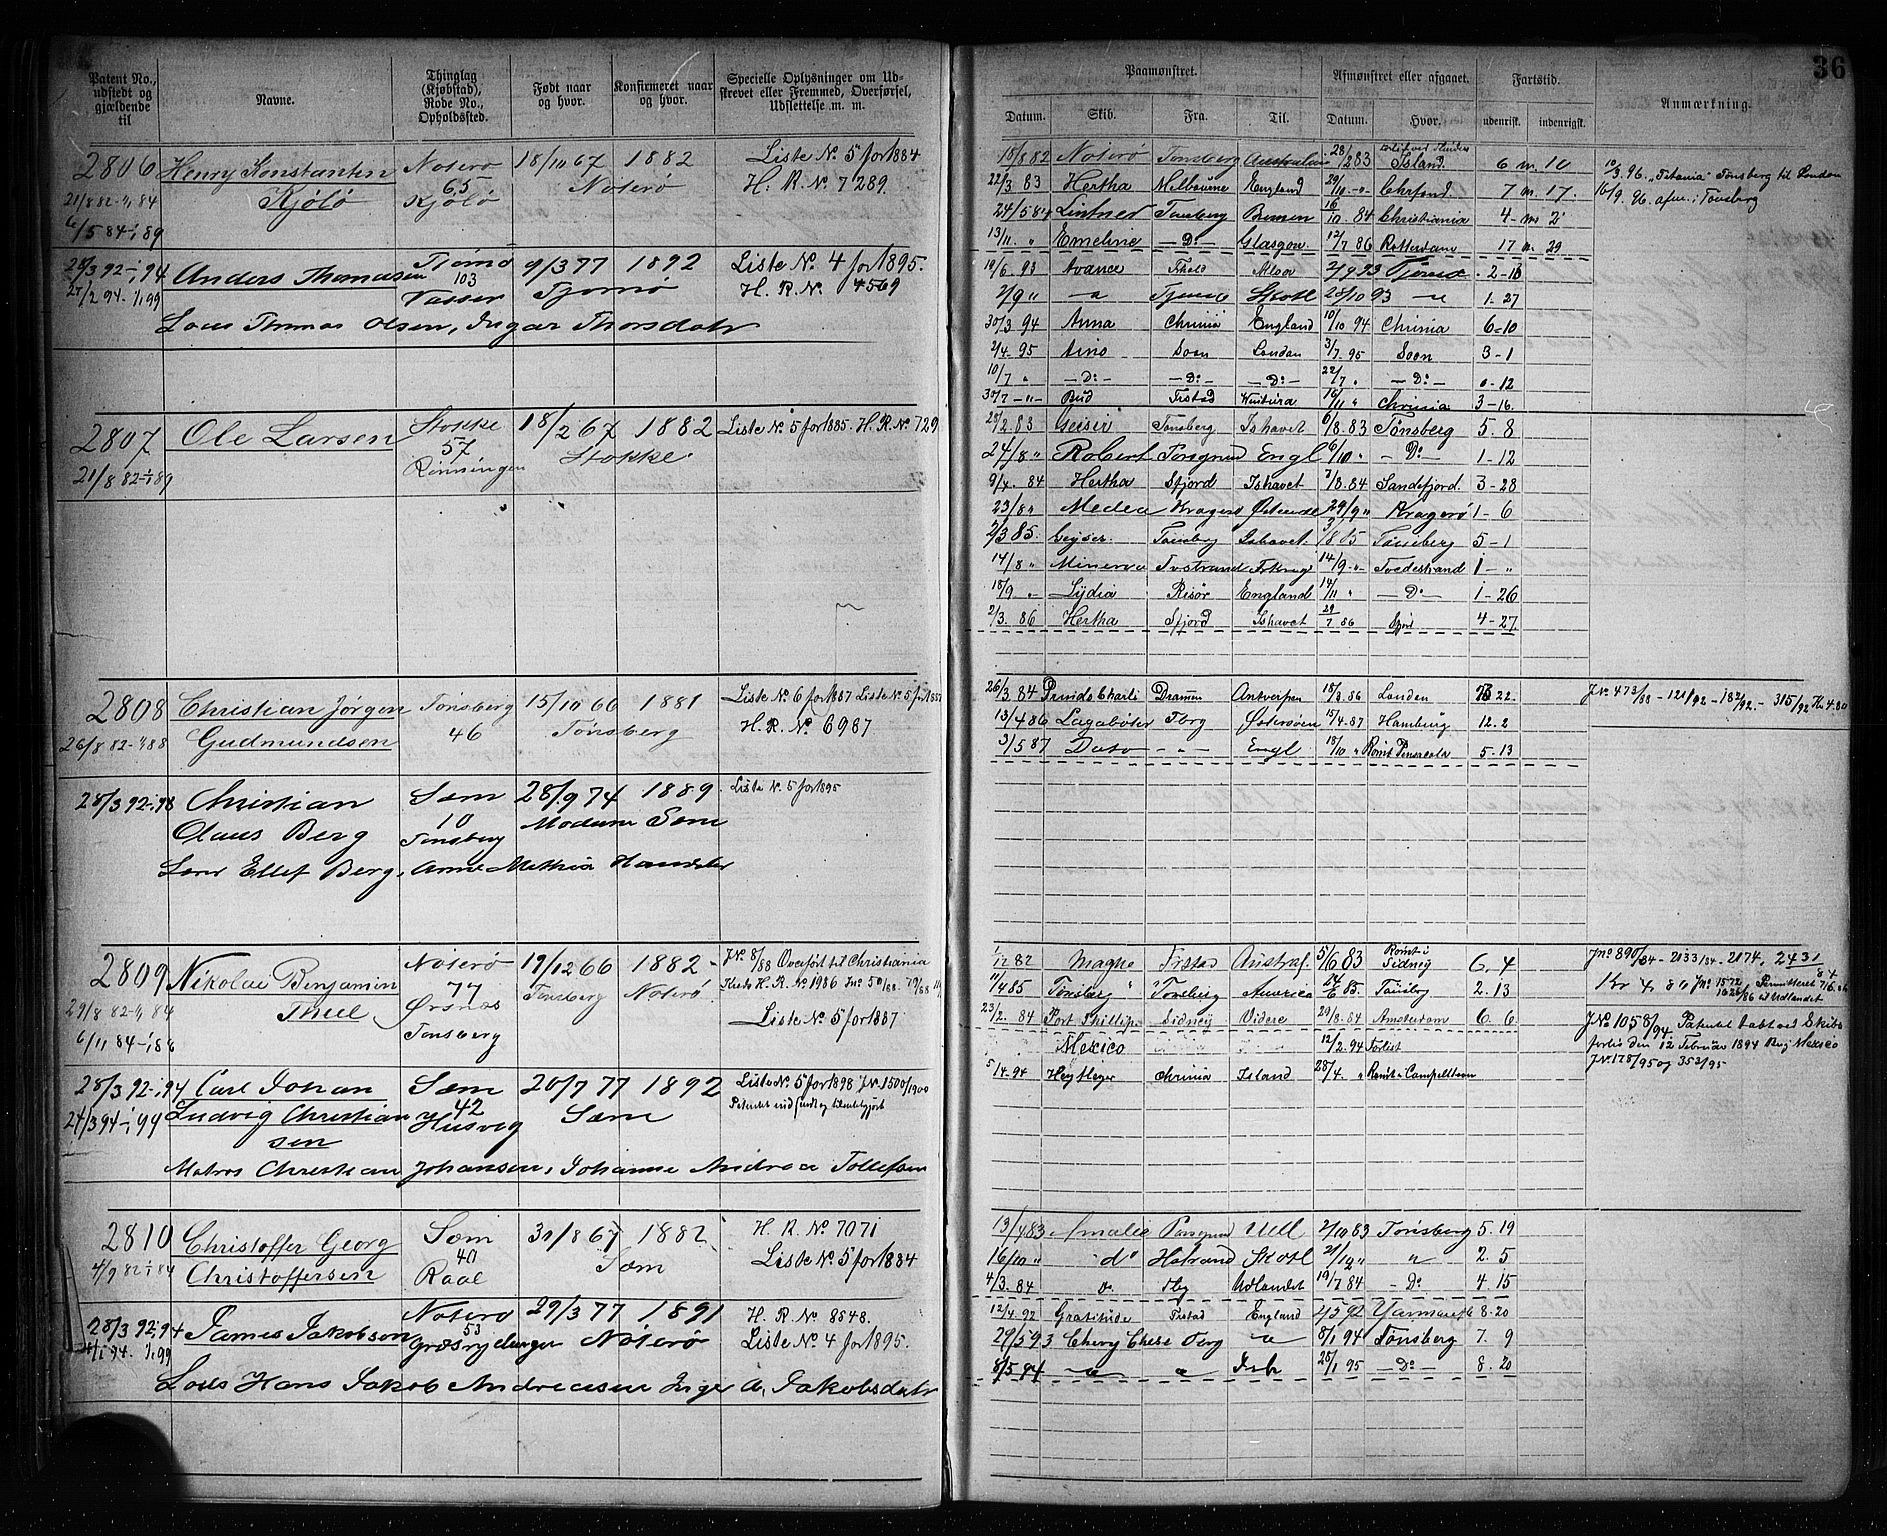 36
Patent No., udstedt og gjældende til
Navne.
Thinglag (Kjøbstad), Rode No., Opholdssted.
Født naar og hvor.
Konfirmeret naar og hvor.
Specielle Oplysninger om Udskrevet eller Fremmed, Overførsel, Udslettelse m. m.
Paamønstret.
Afmønstret eller afgaaet.
Fartstid.
Anmærkning.
Datum. Skib. Fra. Til. Datum. Hvor. udenrisk. indenrigsk.
2806 Henry Konstantin Nøterø 18/10 67 1882 Liste No. 5 for 1884
65 Nøterø H. R. No 7289.
Kjølø Kjølø
21/8 82-1/1 84
6/5 84-1/1 89
18/8 82 Nøterø Tønsberg Australien 28/2 83 Island 6 m. 10
22/3 83 Hertha Melbourne England 29/11 -"- Chrsand 7 m. 17.
24/5 84 Lintner Tønsberg Bremen 16/10 84 Christiania 4- m 2
13/11 " Emeline -Do- Glasgow 12/7 86 Rotterdam 17 m 29
10/3. 96. „Titania" Tønsberg til London
16/9. 96 afm. i Tønsberg
28/3 92-1/1 94 Anders Thomassen Tjømø 9/3 77 1892 Liste No. 4 for 1895.
27/2 94-1/1 99 103 Vasser Tjømø H. R. No. 4569
Lods Thomas Olsen, Ingar Thorsdatr
19/6. 93 Avance 2/9 93 Tjømø 2-13
2/9 " Tjømø Skotl 28/10 93 1-27
30/3 94 Anna Chrinia England 10/10 94 Chrinia 6-10
2/4 95 Aino Soon London 3/7. 95 Soon 3-1
10/7 " -Do- -Do- -Do- 22/7 " -Do- 0-12
30/7 -"- Frstad 16/11 " Chrinia 3-16
2807 Ole Larsen Stokke 18/2 67 1882 Liste No. 5 for 1885. H. R. No 729
57 Stokke
21/8 82-1/1 89 Rønningen
28/2. 83 Geisir Tønsberg Ishavet 6/8. 83 Tønsberg 5. 8
24/8 " Robert Porsgrund Engl 6/10 " -Do- 1-12
9/4. 84 Hertha Sfjord Ishavet 7/8. 84 Sandefjord. 3-28
23/8 " Medea Kragerø Ostende 29/9 " Kragerø 1-6
2/3 85. Geyser. Tønsberg Ishavet. 3/8 85 Tønsberg 5-1
14/8 " Minerva Tvstrand 14/9 -"- Tvedestrand 1-"
18/9 " Lydia Risør England 14/11 " -Do- 1-26
2/3. 86 Hertha Sfjord Ishavet 29/7 86 Sfjord 4-27
2808 Christian Jørgen Tønsberg 15/10 66 1881 Liste No. 6 for 1887 Liste No. 5 for 1887
Gudmundsen 46 Tønsberg H. R. No. 6987
26/8 82-1/1 88
26/3 84 Prinds Charli Dramen Antverpen 18/3. 86 London 22.
13/4 86 Lagabøter Tbrg Østersøen 15/4. 87 Hamburg 12. 2
3/5 87 Dato -"- Engl 18/10 " Rømt Pensacola 5. 13
J.No. 473/88 - 121/92 - 182/92 - 315/92 Kr 4.80
28/3 92-1/1 98 Christian Sem 28/9 74 1889 Liste No. 5 for 1895
Claus Berg 10 Tønsberg Modum Sem
Lærer Ellef Berg, Anne Mathea Hansdtr
2809 Nikolai Benjamin Nøterø 19/12 66 1882 JNo. 8/88 Overført til Christiania
Thiel 77 Ørsnes Tønsberg Tønsberg Nøterø Kreds H. R. No 1986
29/8 82-1/1 84
6/11 84-1/1 88 Liste No. 5 for 1887
1/12 82 Magne Frstad Austral. 5/10 83 Rømt i Sidney 6. 4
11/4 85 Tønsberg Tønsberg America 85. Tønsberg 2. 13
23/2. 84 Port Phillip Sidney Videre 29/8. 84 Amsterdam 6. 6
Mexico 12/2. 94 Forlist
5/4. 94 Chrinia Island 28/4. " Rømt i Campelltown
JNo 890/84 - 2133/84 - 2174, 2431/84
Kr 4 80 JNo. 1572 1626/86 Permitteret til Udlandet
JNo 1058/94 Patentet tabt ved Skibs
forlis den 12 Februar 1894 Brig Mexico
JNo. 178/95 og 353/95
28/3 92-1/1 94 Carl Johan Sem 20/7 77 1892 Liste No. 5 for 1898 JNo. 1500/1900
24/3 94-1/1 99 Ludvig Christian 42 Husvig Sem
sen
Matros Christian Johansen, Johanne Andrea Tollefsen
2810 Christoffer Georg Sem 31/8 67 1882 H. R. No 7071
Christoffersen 40 Raael Sem Liste No. 5 for 1884
4/9 82-1/1 84
13/4 83 Amalie Porsgrund Udl 2/10 83 Tønsberg 5. 19
16/10 " do Hstrand Skotl 21/12 " " 2. 5
4/3. 84 Udlandet 19/7 84 -Do- 4 15
28/3 92-1/1 94 James Jakobsen Nøterø 29/3 77 1891 H. R. No 8548.
4/1 94-1/1 99 53 Nøterø Liste No. 4 for 1895.
Lods Hans Jakob Andreasen Inger A. Jakobsdatr
12/4. 92 Gratitude Frstad England 2/5 92 Yarmouth 8-20
29/5 93 Chevy Chese Tbrg 8/1 94 Tønsberg 7. 9
8/5 94 28/1 95 -Do- 8. 20